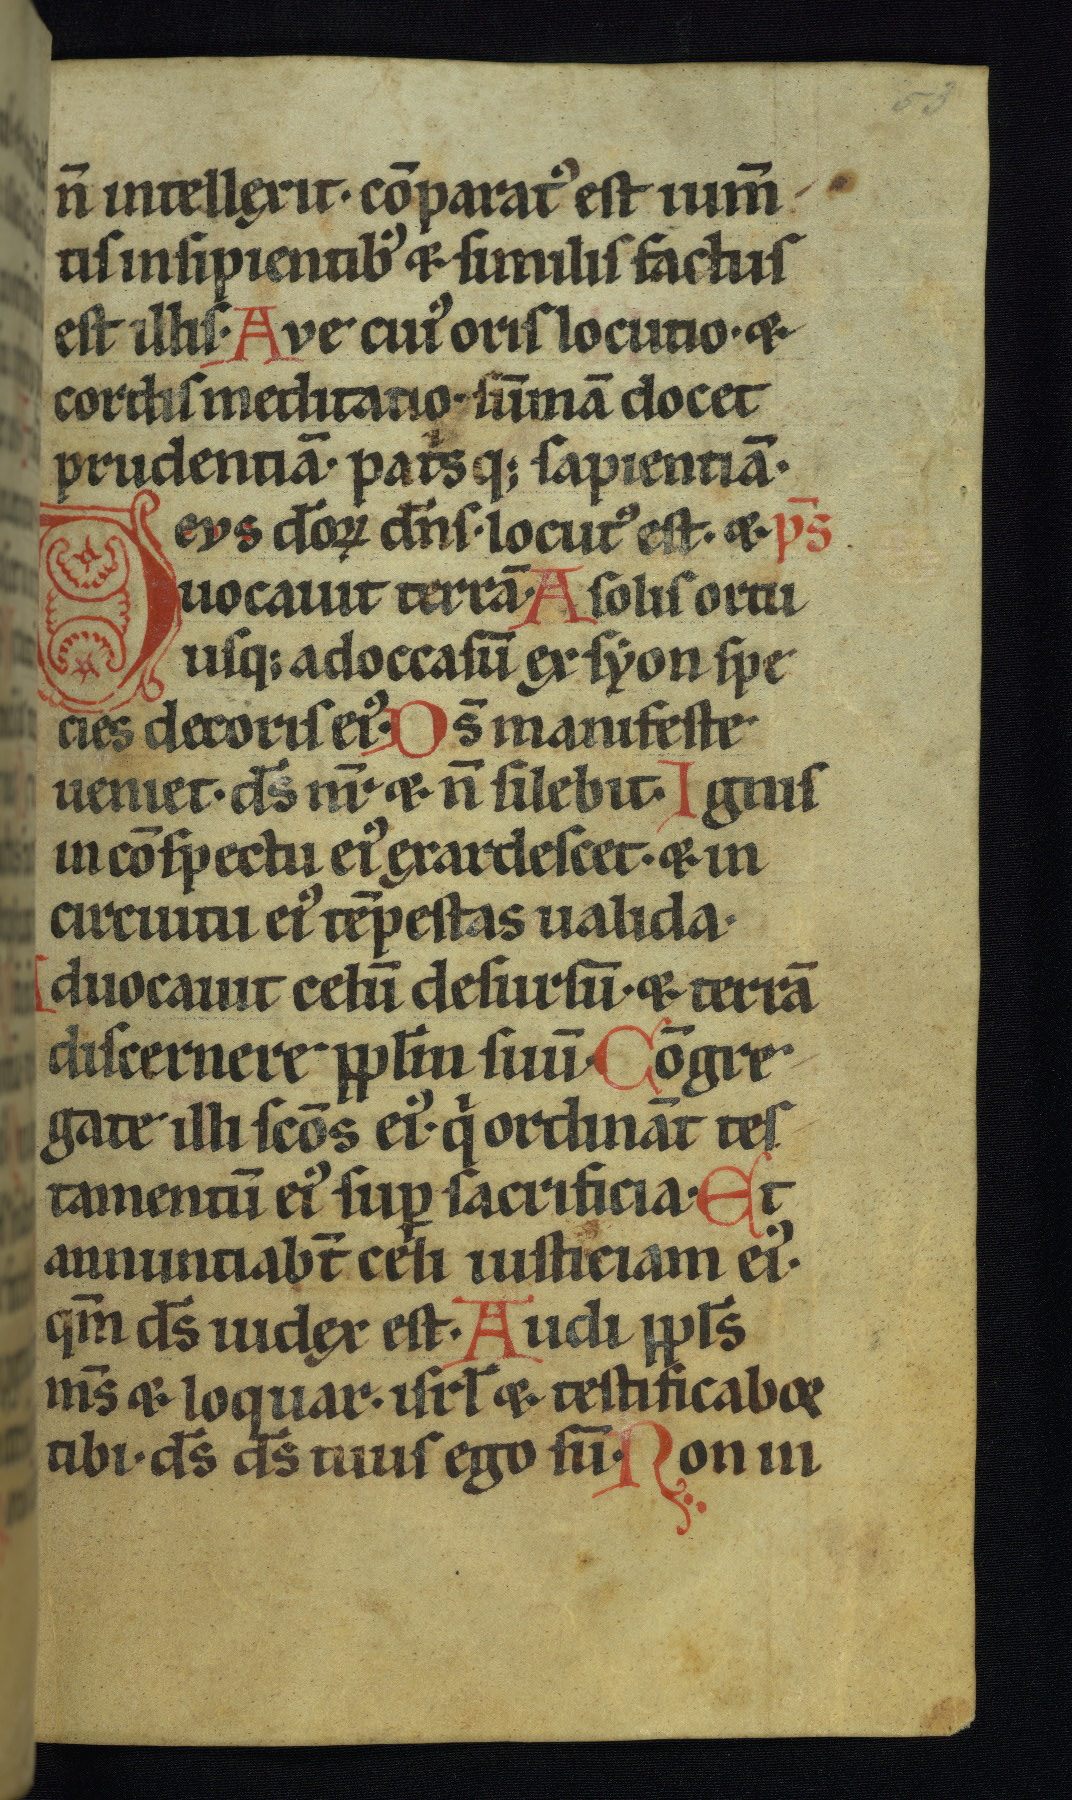 53
n̄ intellexit· cōparat᷒ est ium̄
tis insipientib᷒ & similis factus
est illis· Ave cui᷒ oris locutio· &
cordis meditatio· sūmā docet
prudentiā· pat̄s q; sapientiā·
Deus d̄oꝝ d̄ns· locut᷒ est· & p̄s
uocauit terrā· A solis ortu
usq; ad occasū ex syon spe
cies decoris ei᷒· D s̄ manifeste
ueniet· d̄s nr̄ & n̄ silebit· Ignis
in cōspectu ei᷒ exardescet· & in
circuitu ei᷒ tēpestas ualida·
Aduocauit celū desursū· & terrā
discernere ppl̄m suū· Cōgre
gate illi scōs ei᷒· qͥ ordināt tes
tamentū ei᷒ sup̄ sacrificia· Et
annuntiabt̄ celi iusticiam ei᷒·
qm̄ d̄s iudex est· Audi ppl̄s
m̄s & loquar· isrl̄ & testificabor
tibi· d̄s d̄s tuus ego sū· Non in